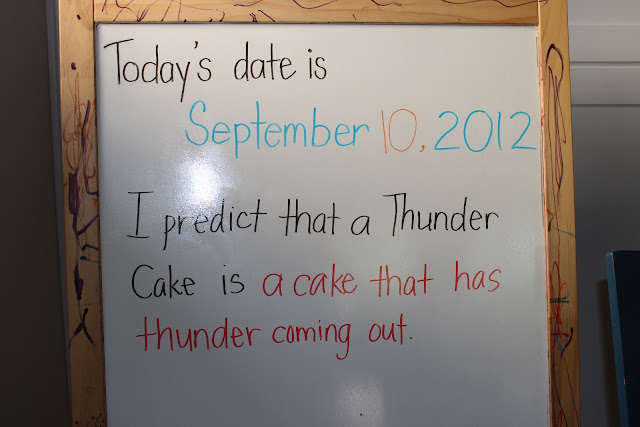 Today's date is
September 10, 2012
I predict that a Thunder
Cake is a cake that has
thunder coming out.